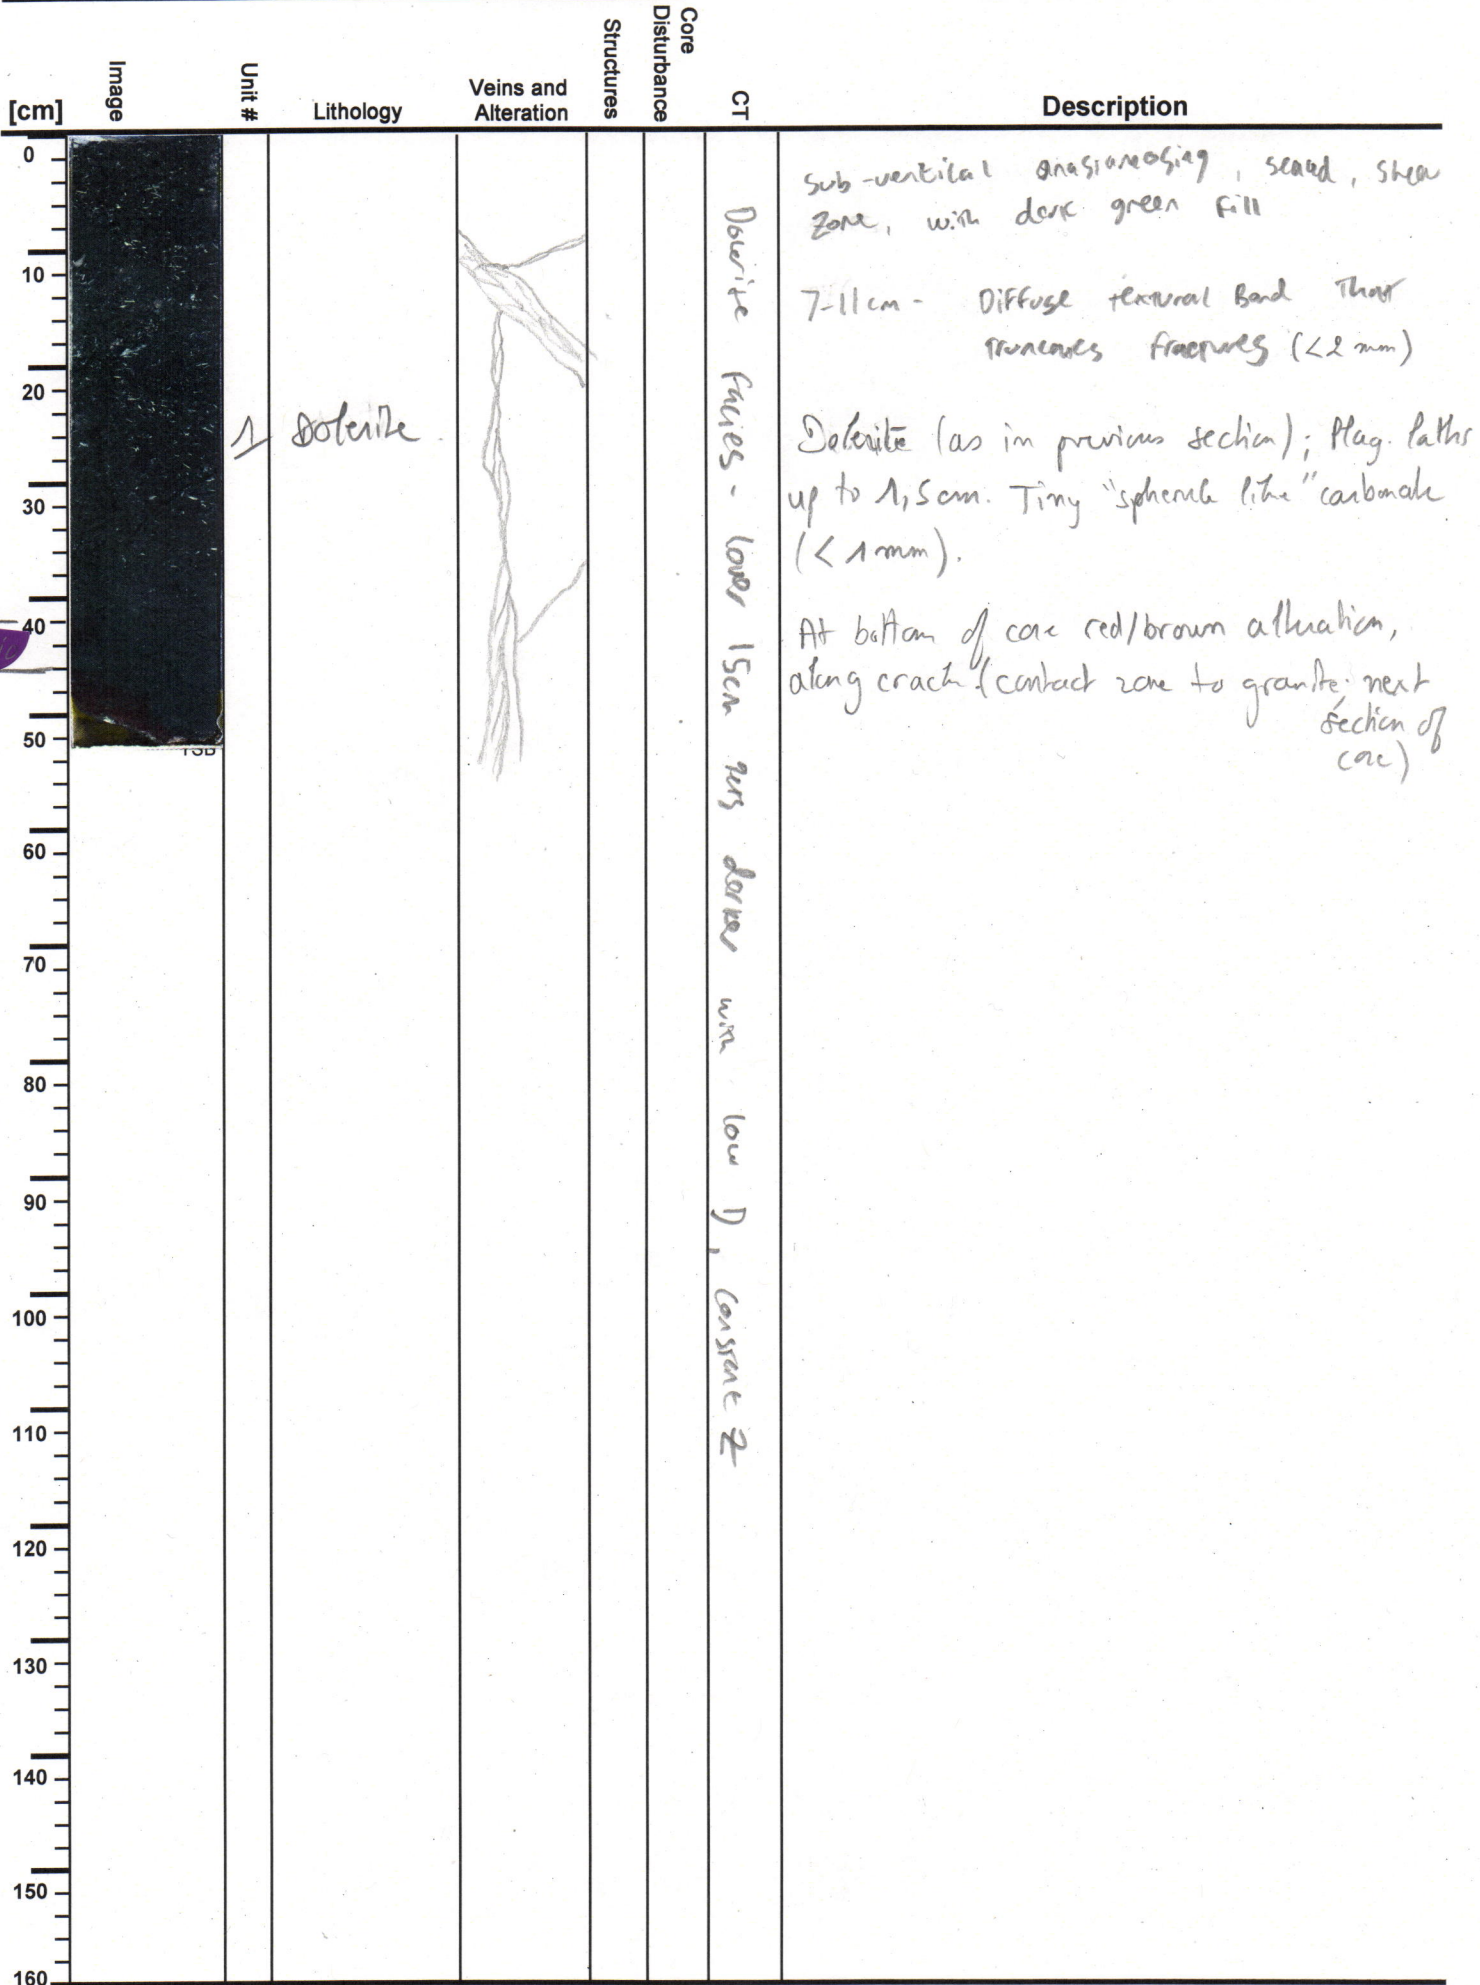 [cm]
Image
Unit #
Lithology
Veins and
Alteration
Structures
Core
Disturbance
CT
Description
0
10
20
30
40
50
60
70
80
90
100
110
120
130
140
150
160
1
Dolerite
Dolerite facies - lower 15cm gets darker with low D, constant Z
Sub-vertical anastamosing, sealed, shear
zone, with dark green fill
7-11cm - Diffuse textural Band That
truncates fractures (<2 mm)
Dolerite (as in previous section); Plag. laths
up to 1,5 cm. Tiny "spherule like" carbonate
(<1mm).
At bottom of core red/brown alteration,
along crack (contact zone to granite; next
section of
core)